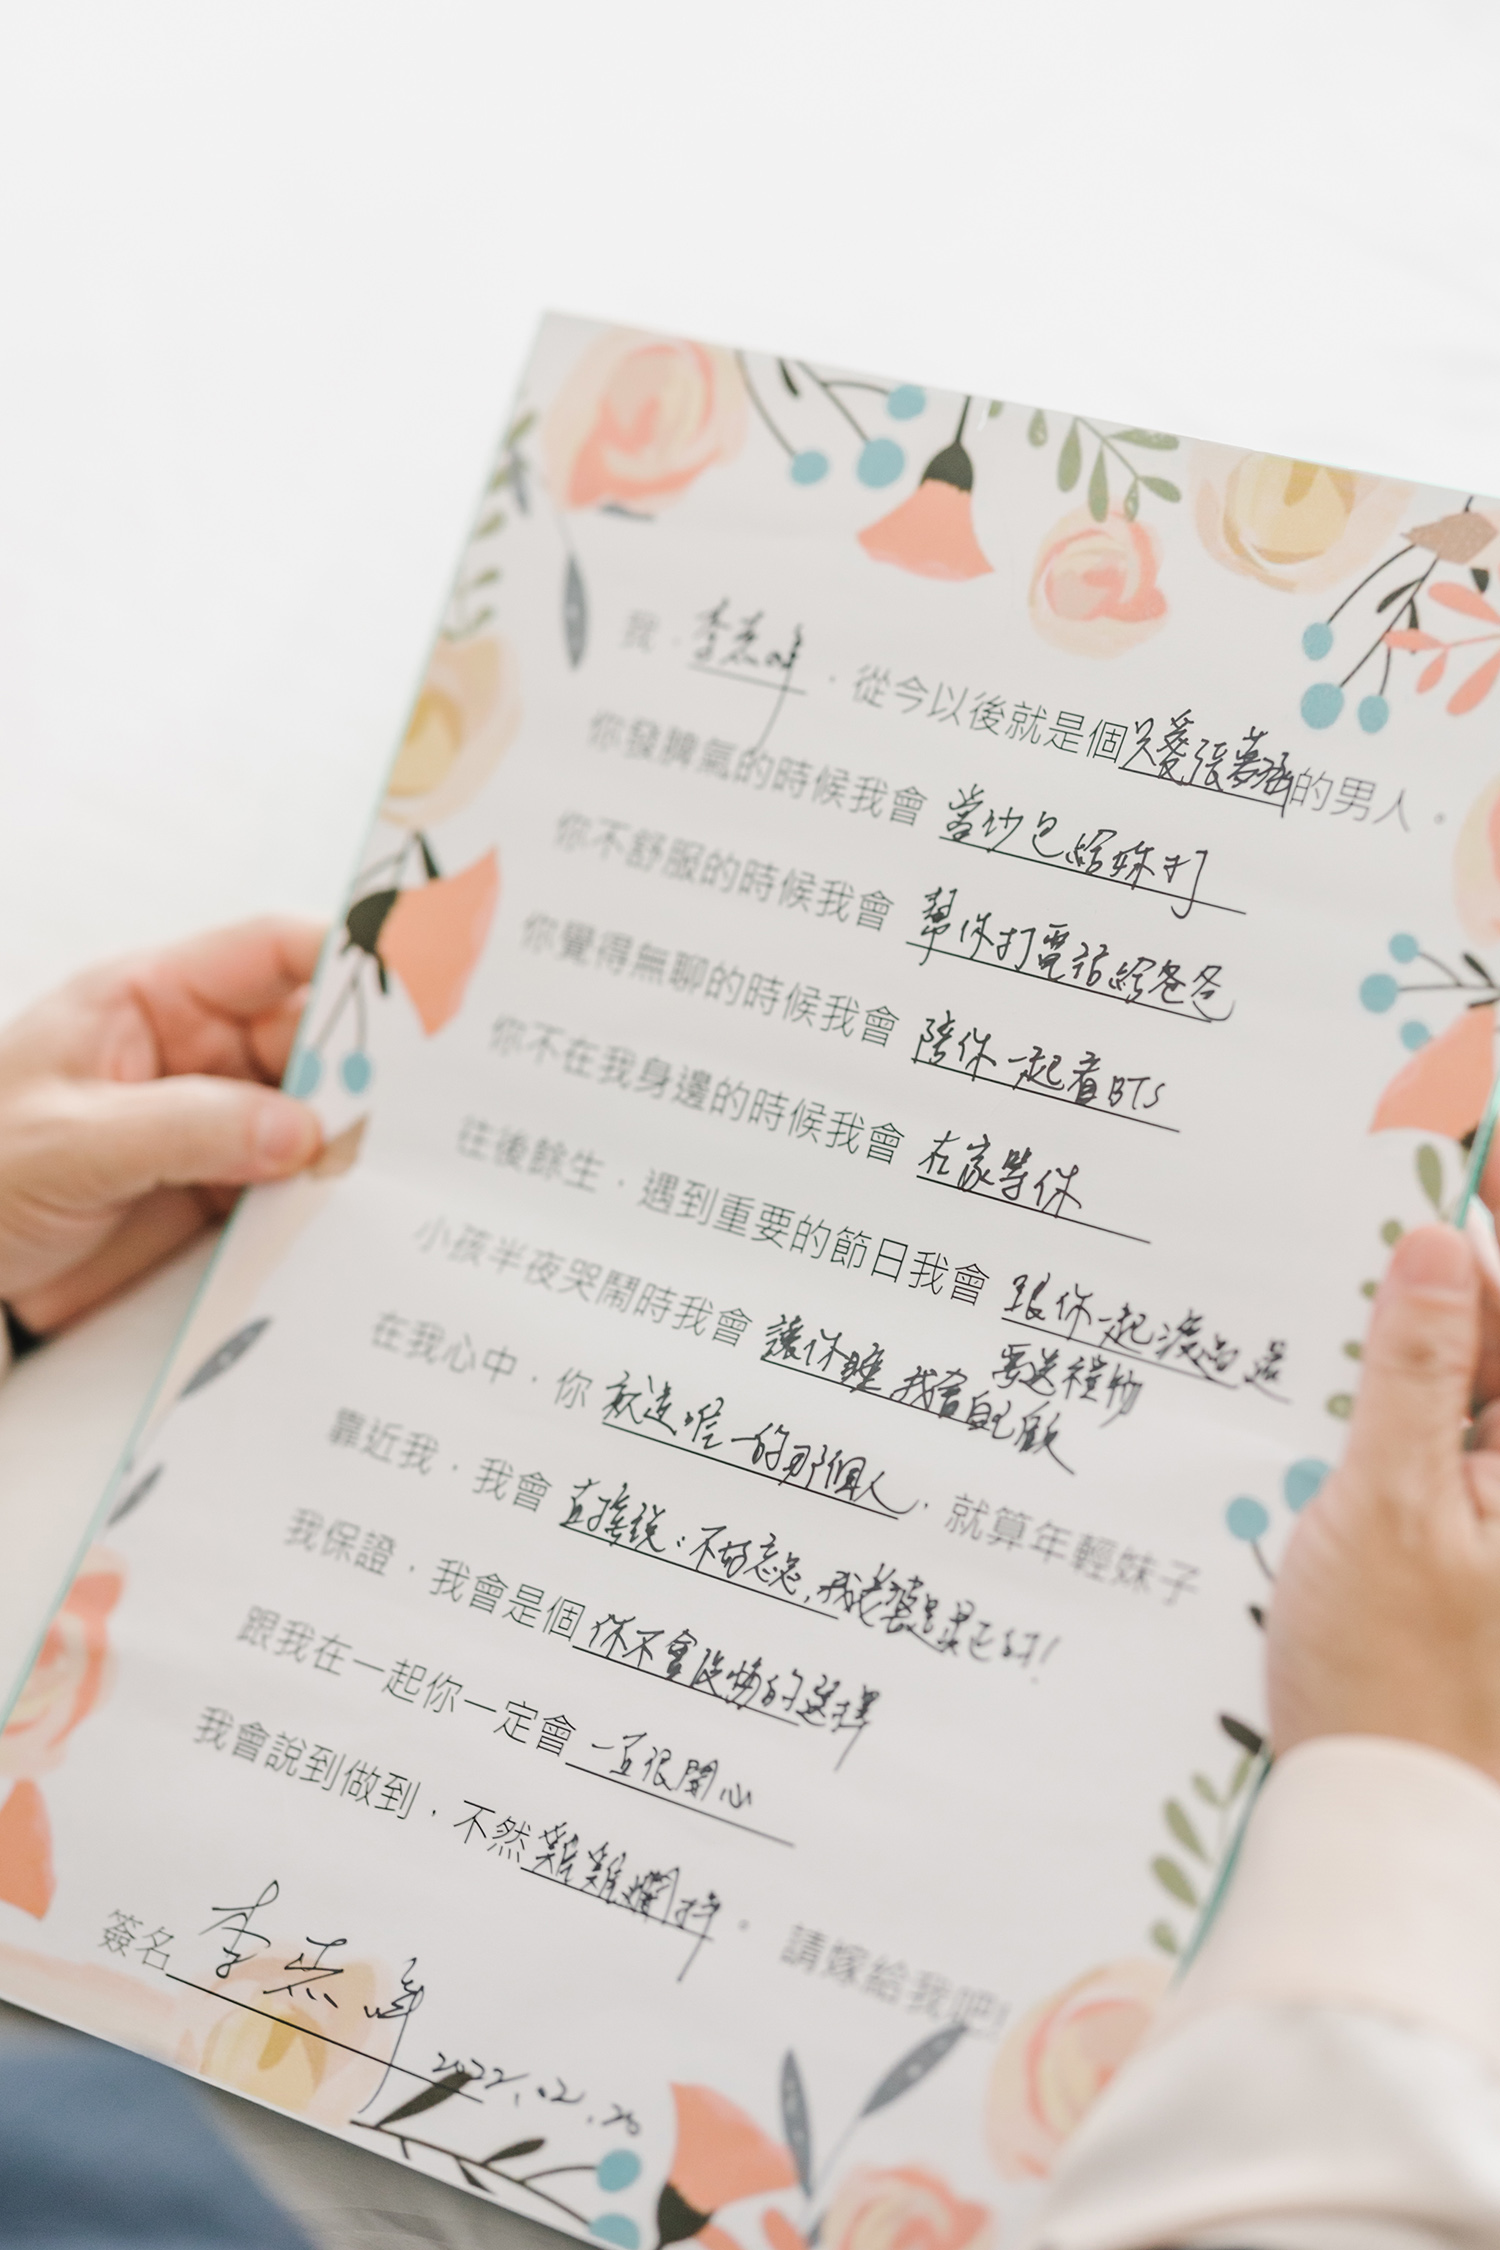 我，李志峰，從今以後就是個只愛張夢涵的男人。
你發脾氣的時候我會 當沙包給妳打
你不舒服的時候我會 幫你打電話給爸爸
你覺得無聊的時候我會 陪你一起看BTS
你不在我身邊的時候我會 在家等你
往後餘生，遇到重要的節日我會 跟你一起渡過
要送禮物
小孩半夜哭鬧時我會 讓你睡 我會自己顧
在我心中，你 就是唯一的那個人，就算年輕妹子
靠近我，我會 直接說：不好意思，我老婆是最正的！
我保證，我會是個 你不會後悔的選擇
跟我在一起你一定會 一直很開心
我會說到做到，不然 雞雞爛掉。請嫁給我吧!
簽名 李志峰
2022.02.20